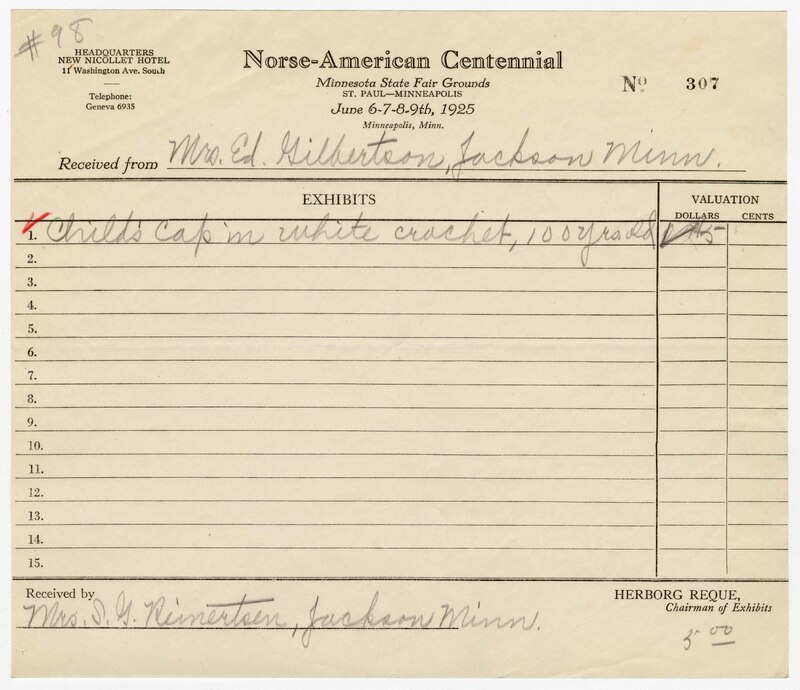 #98
HEADQUARTERS
NEW NICOLLET HOTEL
11 Washington Ave. South
Telephone:
Geneva 6935
Norse-American Centennial
Minnesota State Fair Grounds
ST. PAUL—MINNEAPOLIS
June 6-7-8-9th, 1925
Minneapolis, Minn.
Nº 307
Received from Mrs. Ed. Gilbertson, Jackson Minn.
EXHIBITS
VALUATION
DOLLARS CENTS
1. Child's cap in white crochet, 100 yrs old
2.
3.
4.
5.
6.
7.
8.
9.
10.
11.
12.
13.
14.
15.
Received by
Mrs. S. G. Reinertsen, Jackson Minn.
HERBORG REQUE,
Chairman of Exhibits
5 00